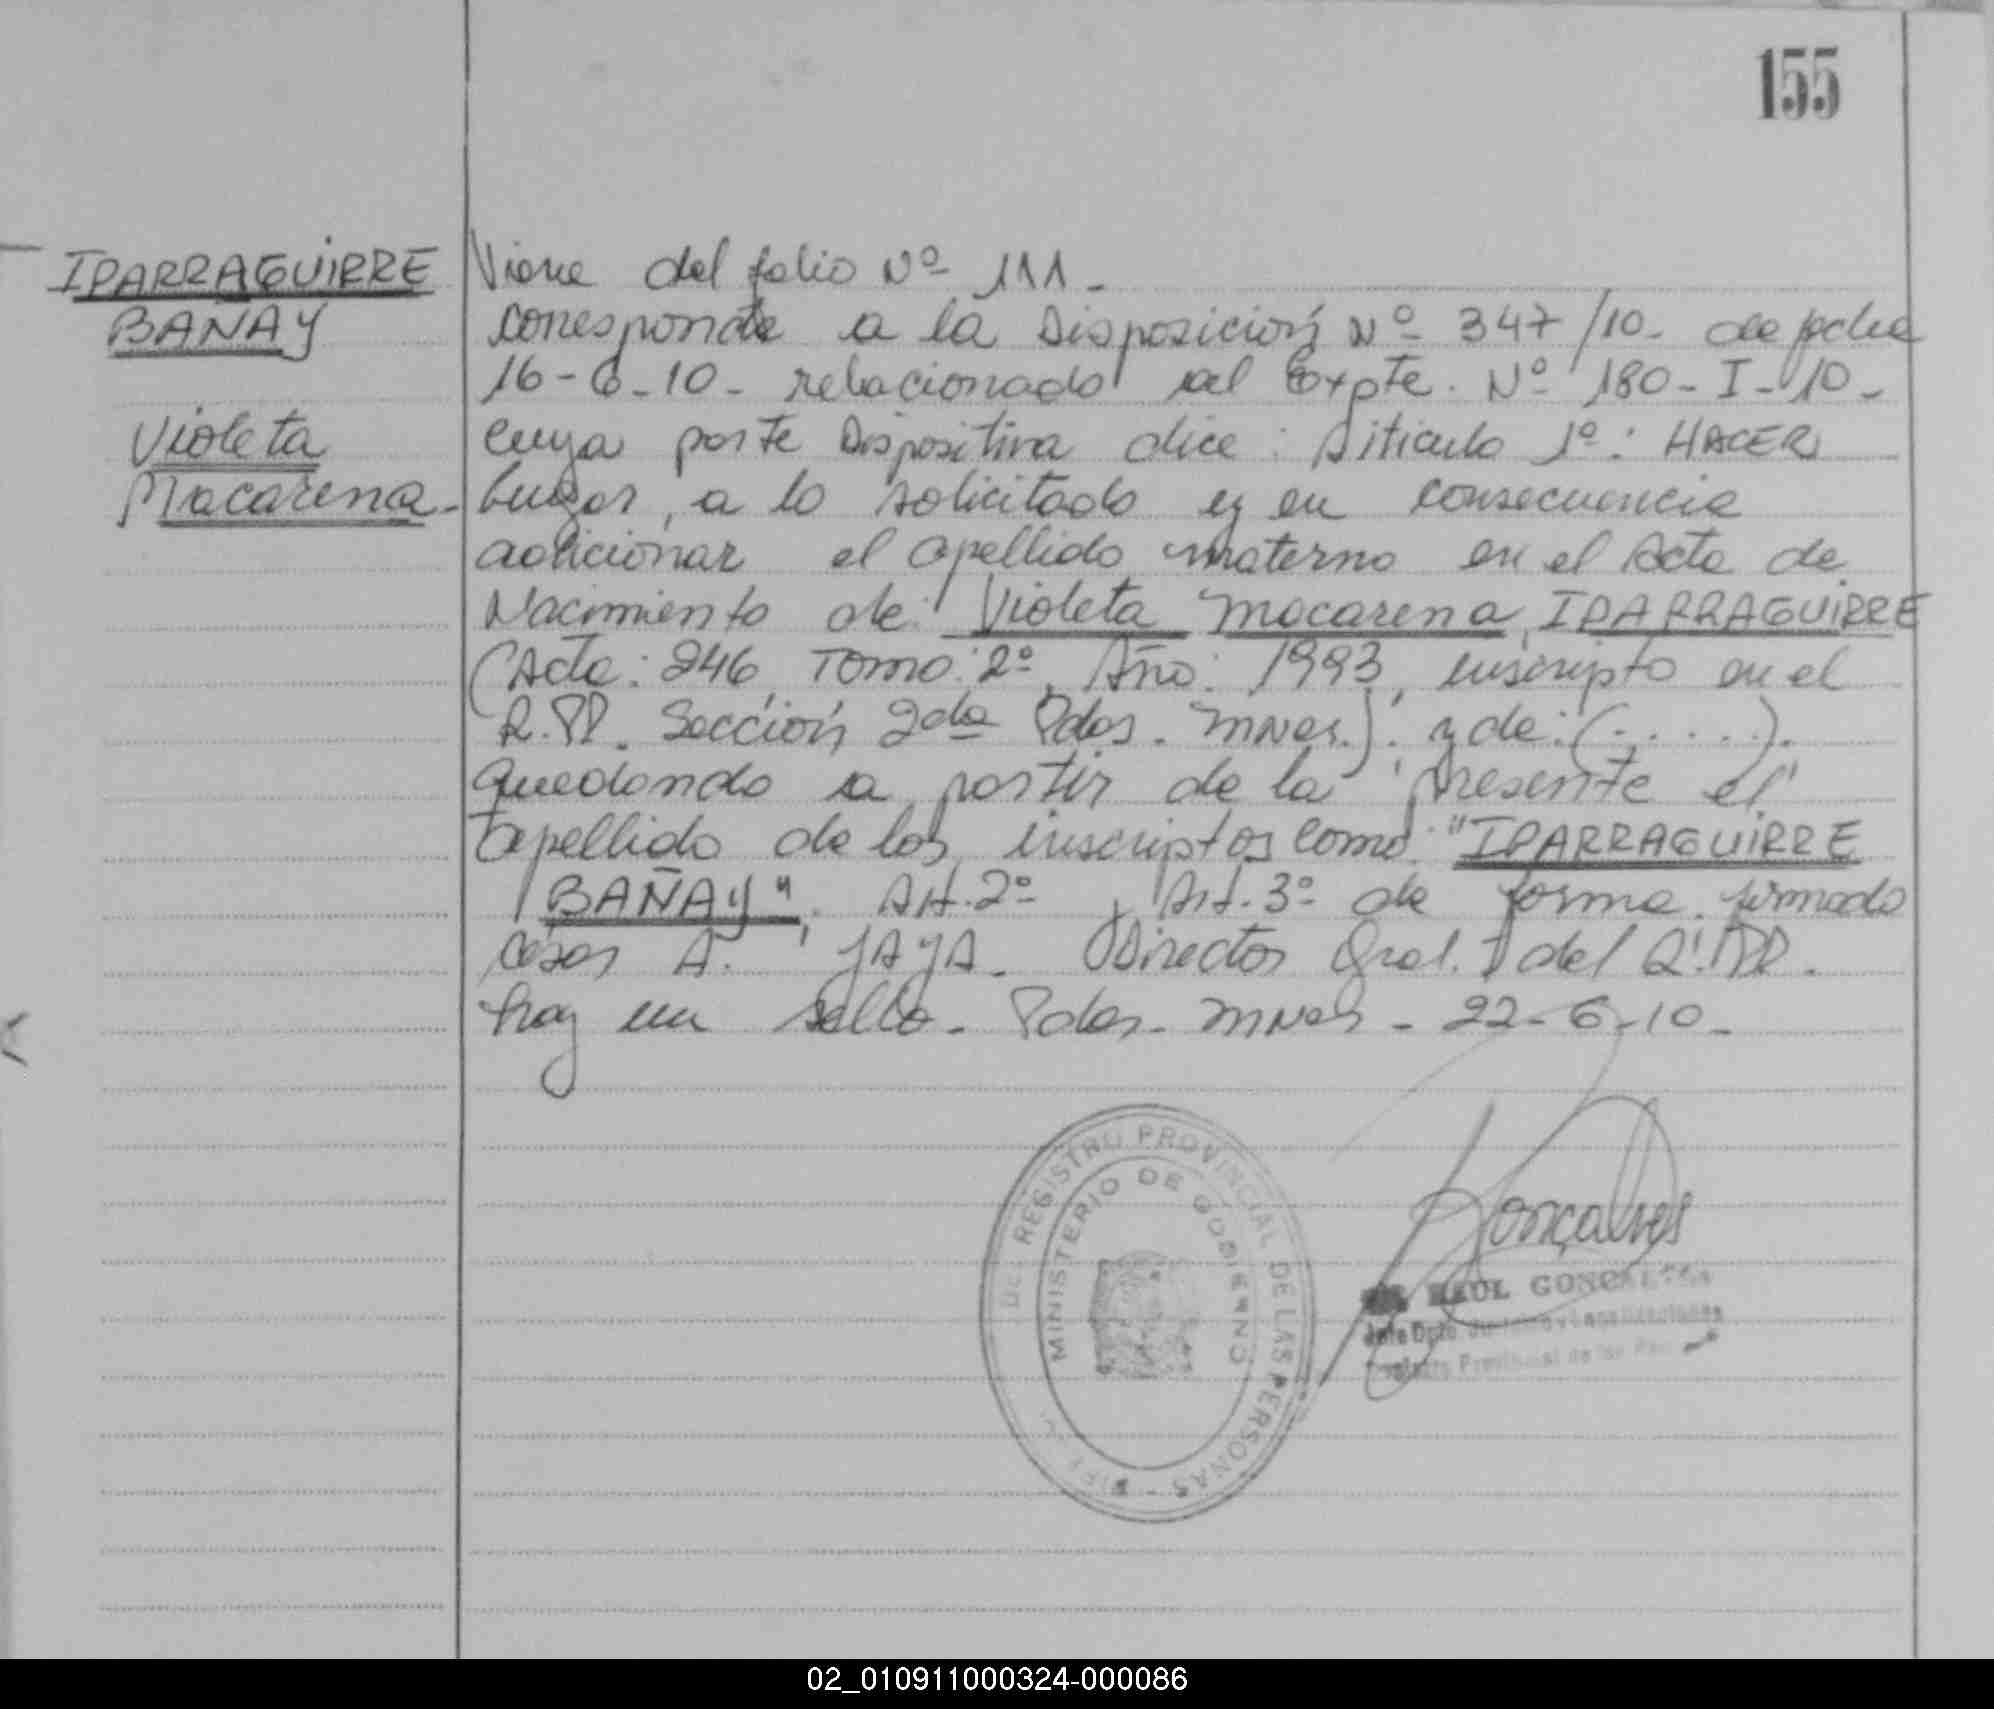 155
IPARRAGUIRRE
BAÑAY
Violeta
Macarena.
Viene del folio Nº 111.
corresponde a la Disposición Nº 347/10. de fecha
16-6-10- relacionado al Expte. Nº 180-I-10-
cuya parte Dispositiva dice: Articulo 1º: HACER
lugar, a lo solicitado y en consecuencia
adicionar el apellido materno en el Acta de
Nacimiento de: Violeta Macarena IPARRAGUIRRE
(Acta: 246, Tomo: 2º, Año: 1993, inscripto en el
R.PP. Sección 2da Pdas. Mnes.). y de: (......).
quedando a partir de la presente el
apellido de los inscriptos como: "IPARRAGUIRRE
BAÑAY". Art. 2º, Art. 3º de forma. firmado
Cesar A. JAJA. Director Gral. del R.PP.
hay un sello. Pdas. Mnes - 22-6-10-
DEL REGISTRO PROVINCIAL DE LAS PERSONAS
MINISTERIO DE GOBIERNO
Gonçalves
RAUL GONCALVES
Jefe Dpto.
Provincial de las
02_010911000324-000086